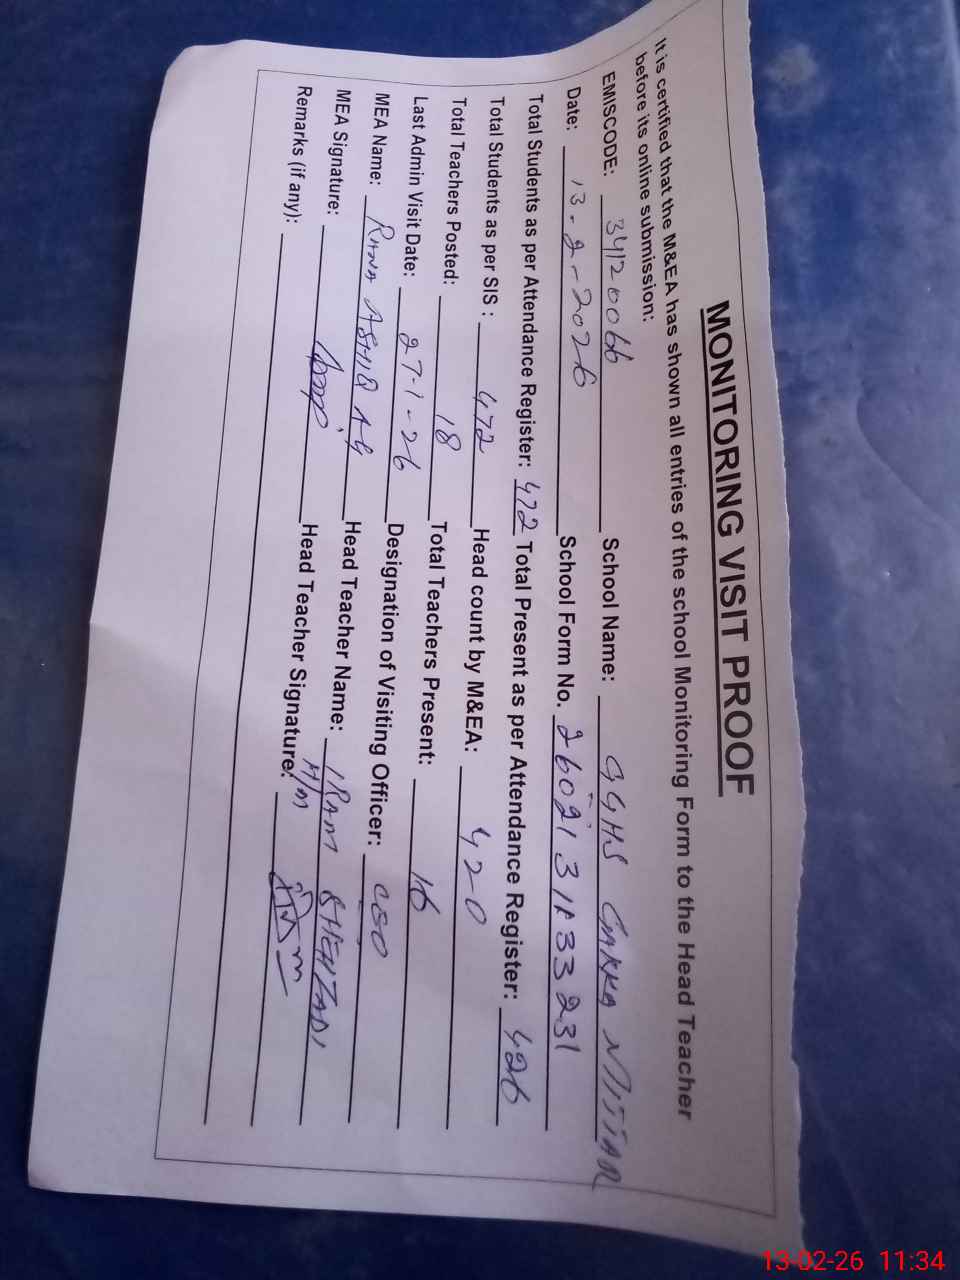 MONITORING VISIT PROOF
It is certified that the M&EA has shown all entries of the school Monitoring Form to the Head Teacher
before its online submission:
EMISCODE: 34120066 School Name: GGHS CHAKKA NIJJAR
Date: 13-2-2026 School Form No. 2602131833231
Total Students as per Attendance Register: 472 Total Present as per Attendance Register: 426
Total Students as per SIS: 472 Head count by M&EA: 420
Total Teachers Posted: 18 Total Teachers Present: 16
Last Admin Visit Date: 27-1-26 Designation of Visiting Officer: CEO
MEA Name: RANA ASHIQ Ali Head Teacher Name: IRAM SHEHZADI
MEA Signature: Head Teacher Signature: H/m
Remarks (if any):
13-02-26 11:34